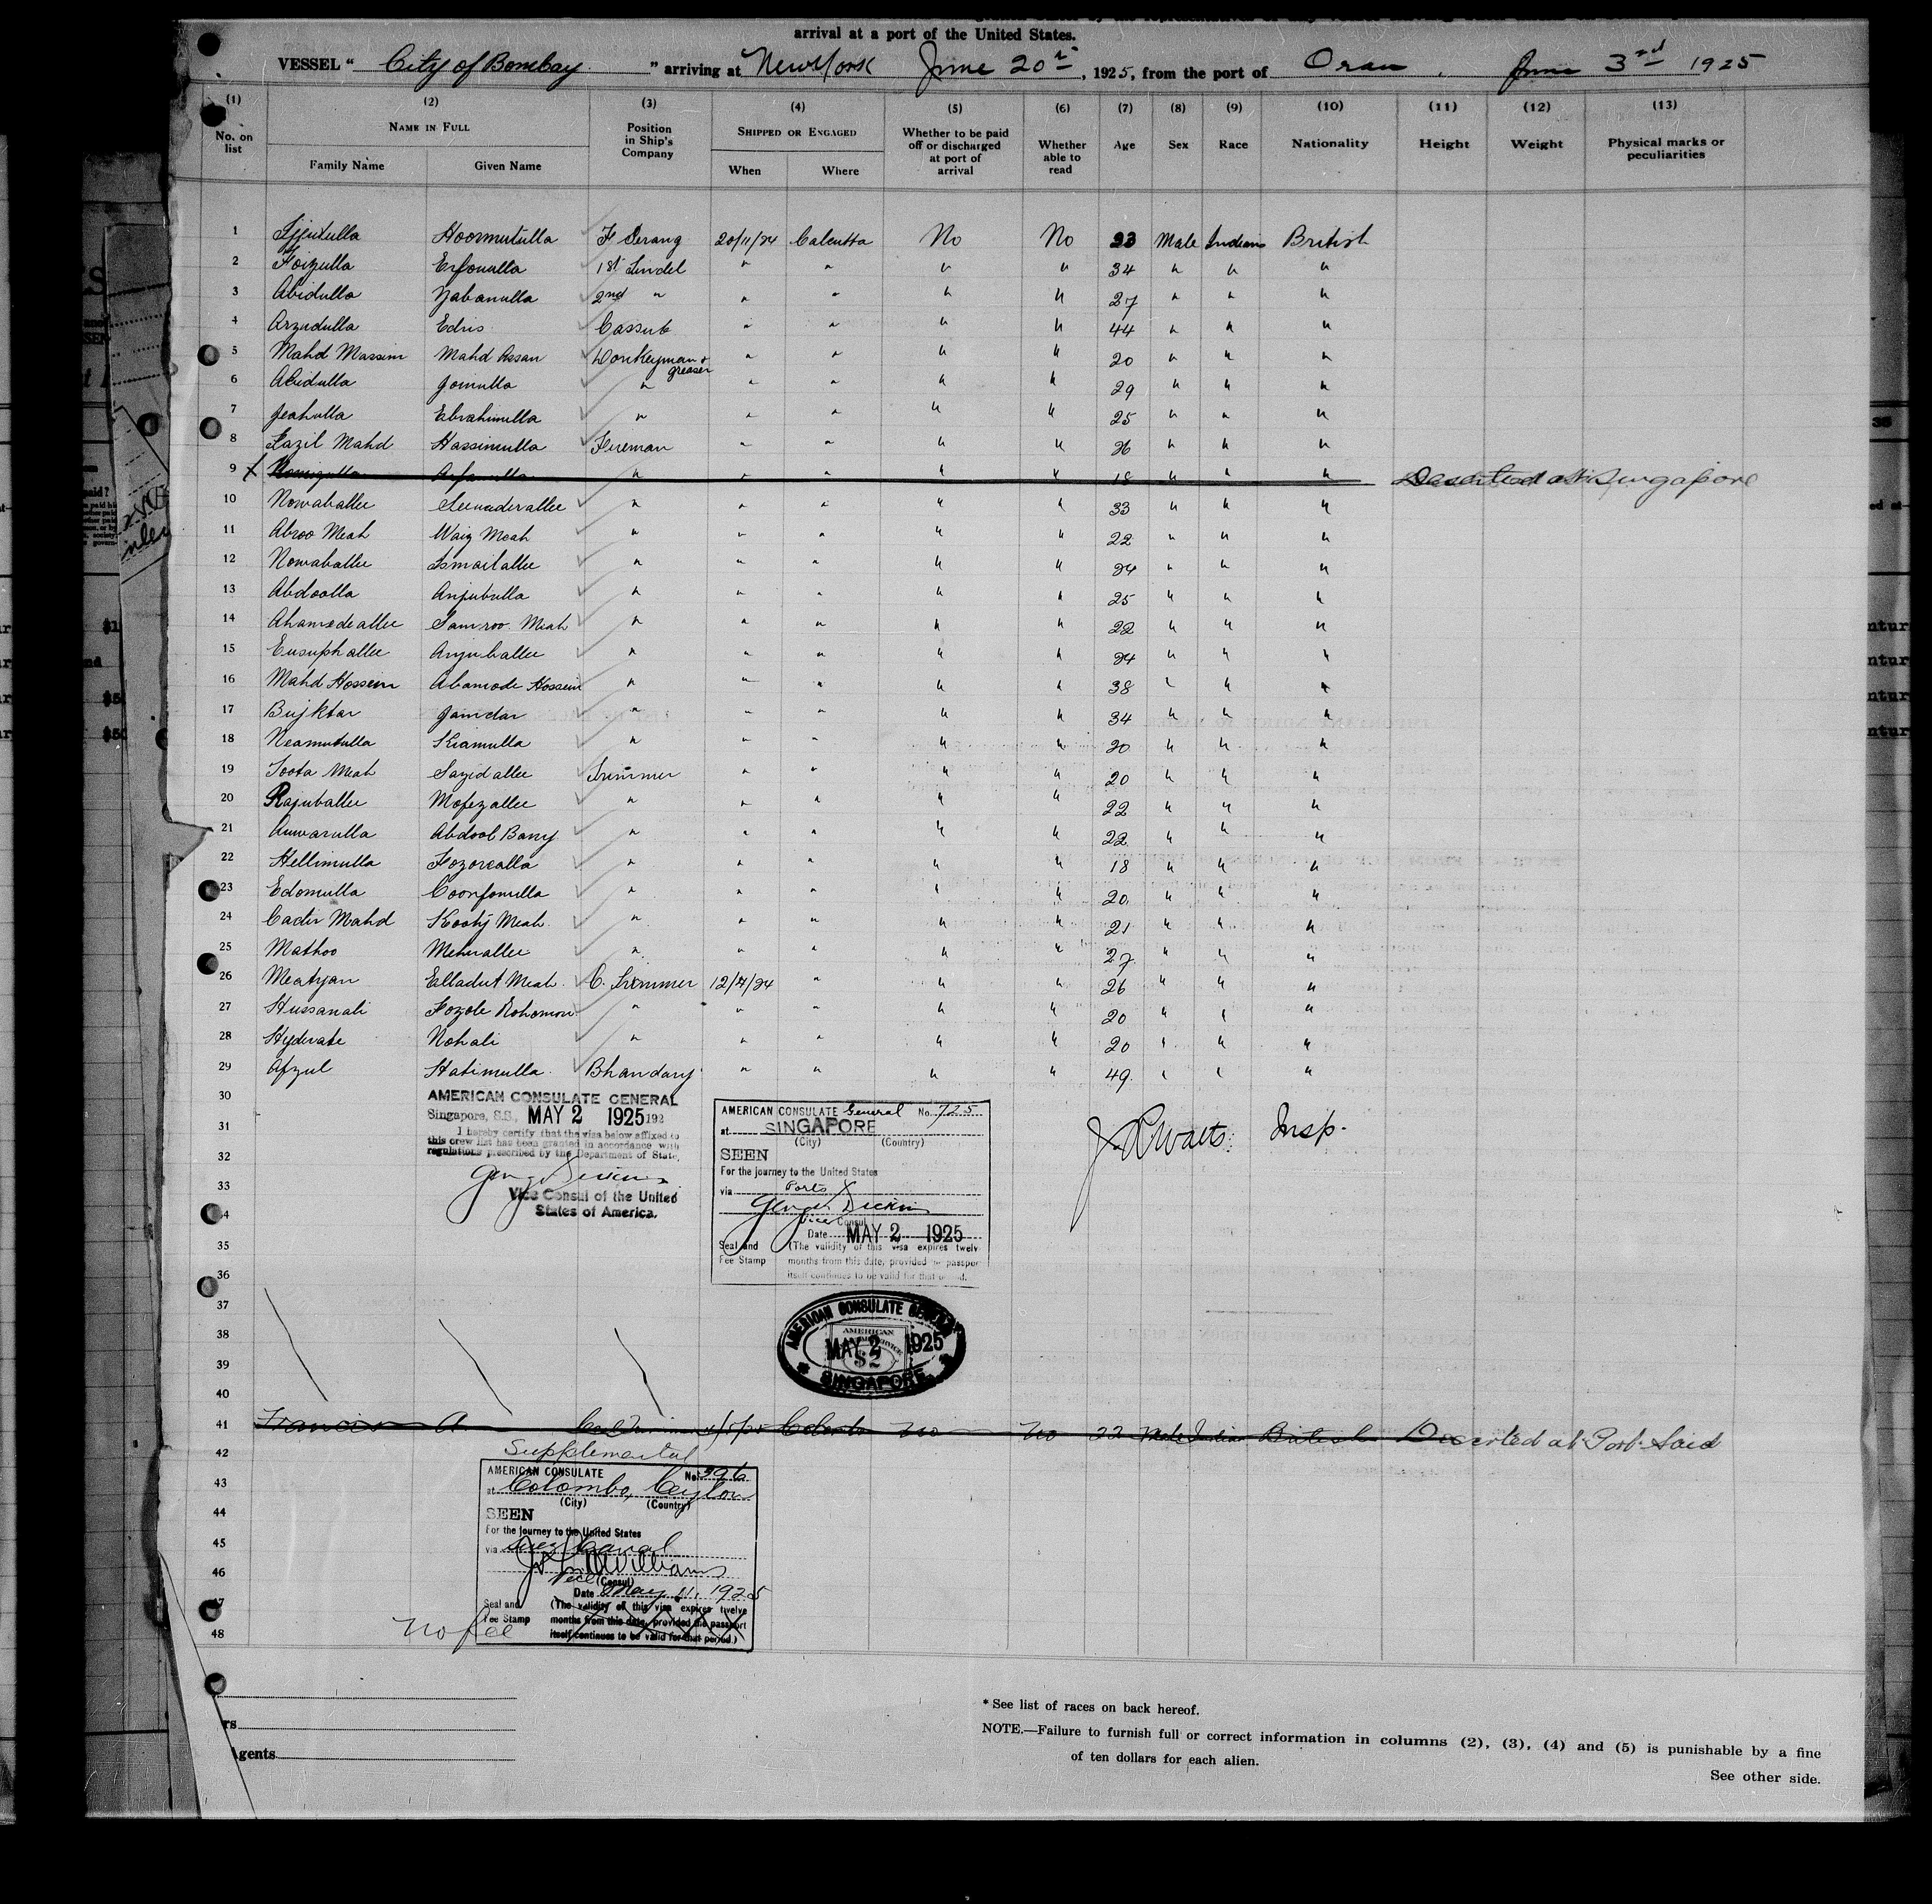 arrival at a port of the United States.
VESSEL " City of Bombay " arriving at New York June 20th, 1925, from the port of Oran, June 3rd 1925
(1) (2) (3) (4) (5) (6) (7) (8) (9) (10) (11) (12) (13)
No. on list NAME IN FULL Position in Ship's Company SHIPPED OR ENGAGED Whether to be paid off or discharged at port of arrival Whether able to read Age Sex Race Nationality Height Weight Physical marks or peculiarities
Family Name Given Name When Where
1 Hoormutulla F Serang 20/11/24 Calcutta No No 23 Male Indian British
2 Foizulla Erfonulla 1st Tindel " " " " 34 " " "
3 Abidulla Zabanulla 2nd " " " " " 27 " " "
4 Arzudulla Edris Cassub " " " " 44 " " "
5 Mahd Massim Mahd Assan Donkeyman & greaser " " " " 20 " " "
6 Abidulla Jomulla " " " " " 29 " " "
7 Jeahulla Ebrahimulla " " " " " 25 " " "
8 Fazil Mahd Hassimulla Fireman " " " " 26 " " "
9 X " " " " " 18 " " " Deserted at Singapore
10 Nowaballee Secunderallee " " " " " 33 " " "
11 Abroo Meah Waiz Meah " " " " " 22 " " "
12 Nowaballee Ismailallee " " " " " 24 " " "
13 Abdoolla Anjubulla " " " " " 25 " " "
14 Ahamedeallee Samroo Meah " " " " " 22 " " "
15 Eusuphallee Anjuballee " " " " " 24 " " "
16 Mahd Hossein Abamode Hossein " " " " " 38 " " "
17 Bujktar Jamdar " " " " " 34 " " "
18 Neamutulla Kiamulla " " " " " 20 " " "
19 Toota Meah Sayidallee Trimmer " " " " 20 " " "
20 Rajuballee Mofezallee " " " " " 22 " " "
21 Auwarulla Abdool Barry " " " " " 22 " " "
22 Hellimulla Fozorealla " " " " " 18 " " "
23 Edomulla Coorfonulla " " " " " 20 " " "
24 Cadir Mahd Kooty Meah " " " " " 21 " " "
25 Mathoo Mehurallee " " " " " 27 " " "
26 Meatjan Elladut Meah C. Trimmer 12/4/24 " " " 26 " " "
27 Hussanali Fozole Rohomon " " " " " 20 " " "
28 Hyderate Nohali " " " " " 20 " " "
29 Afzul Hatimulla Bhandary " " " " 49 " " "
30
31
32
33
34
35
36
37
38
39
40
AMERICAN CONSULATE GENERAL
Singapore, S.S., MAY 2 1925 192
I hereby certify that the visa below affixed to
this crew list has been granted in accordance with
regulations prescribed by the Department of State.
Vice Consul of the United
States of America.
AMERICAN CONSULATE General No. 725
at SINGAPORE
(City) (Country)
SEEN
For the journey to the United States
via Ports
Vice Consul
Date MAY 2 1925
Seal and Fee Stamp (The validity of this visa expires twelv
months from this date, provided passpor
itself continues to be valid for that
J R Watts Insp.
AMERICAN CONSULATE GENERAL
AMERICAN SERVICE
MAY 2 1925
$2
SINGAPORE
41 Francis A. Coal Trimmer Colombo No No 22 Male Indian British Deserted at Port Said
42 Supplemental
43
44
45
46
47
48
AMERICAN CONSULATE No. 396
at Colombo, Ceylon
(City) (Country)
SEEN
For the journey to the United States
via Suez Canal
Vice (Consul)
Date May 11, 1925
Seal and Fee Stamp (The validity of this visa expires twelve
months from this date, provided the passport
itself continues to be valid for that period.)
No fee
rs
Agents
* See list of races on back hereof.
NOTE.—Failure to furnish full or correct information in columns (2), (3), (4) and (5) is punishable by a fine
of ten dollars for each alien.
See other side.